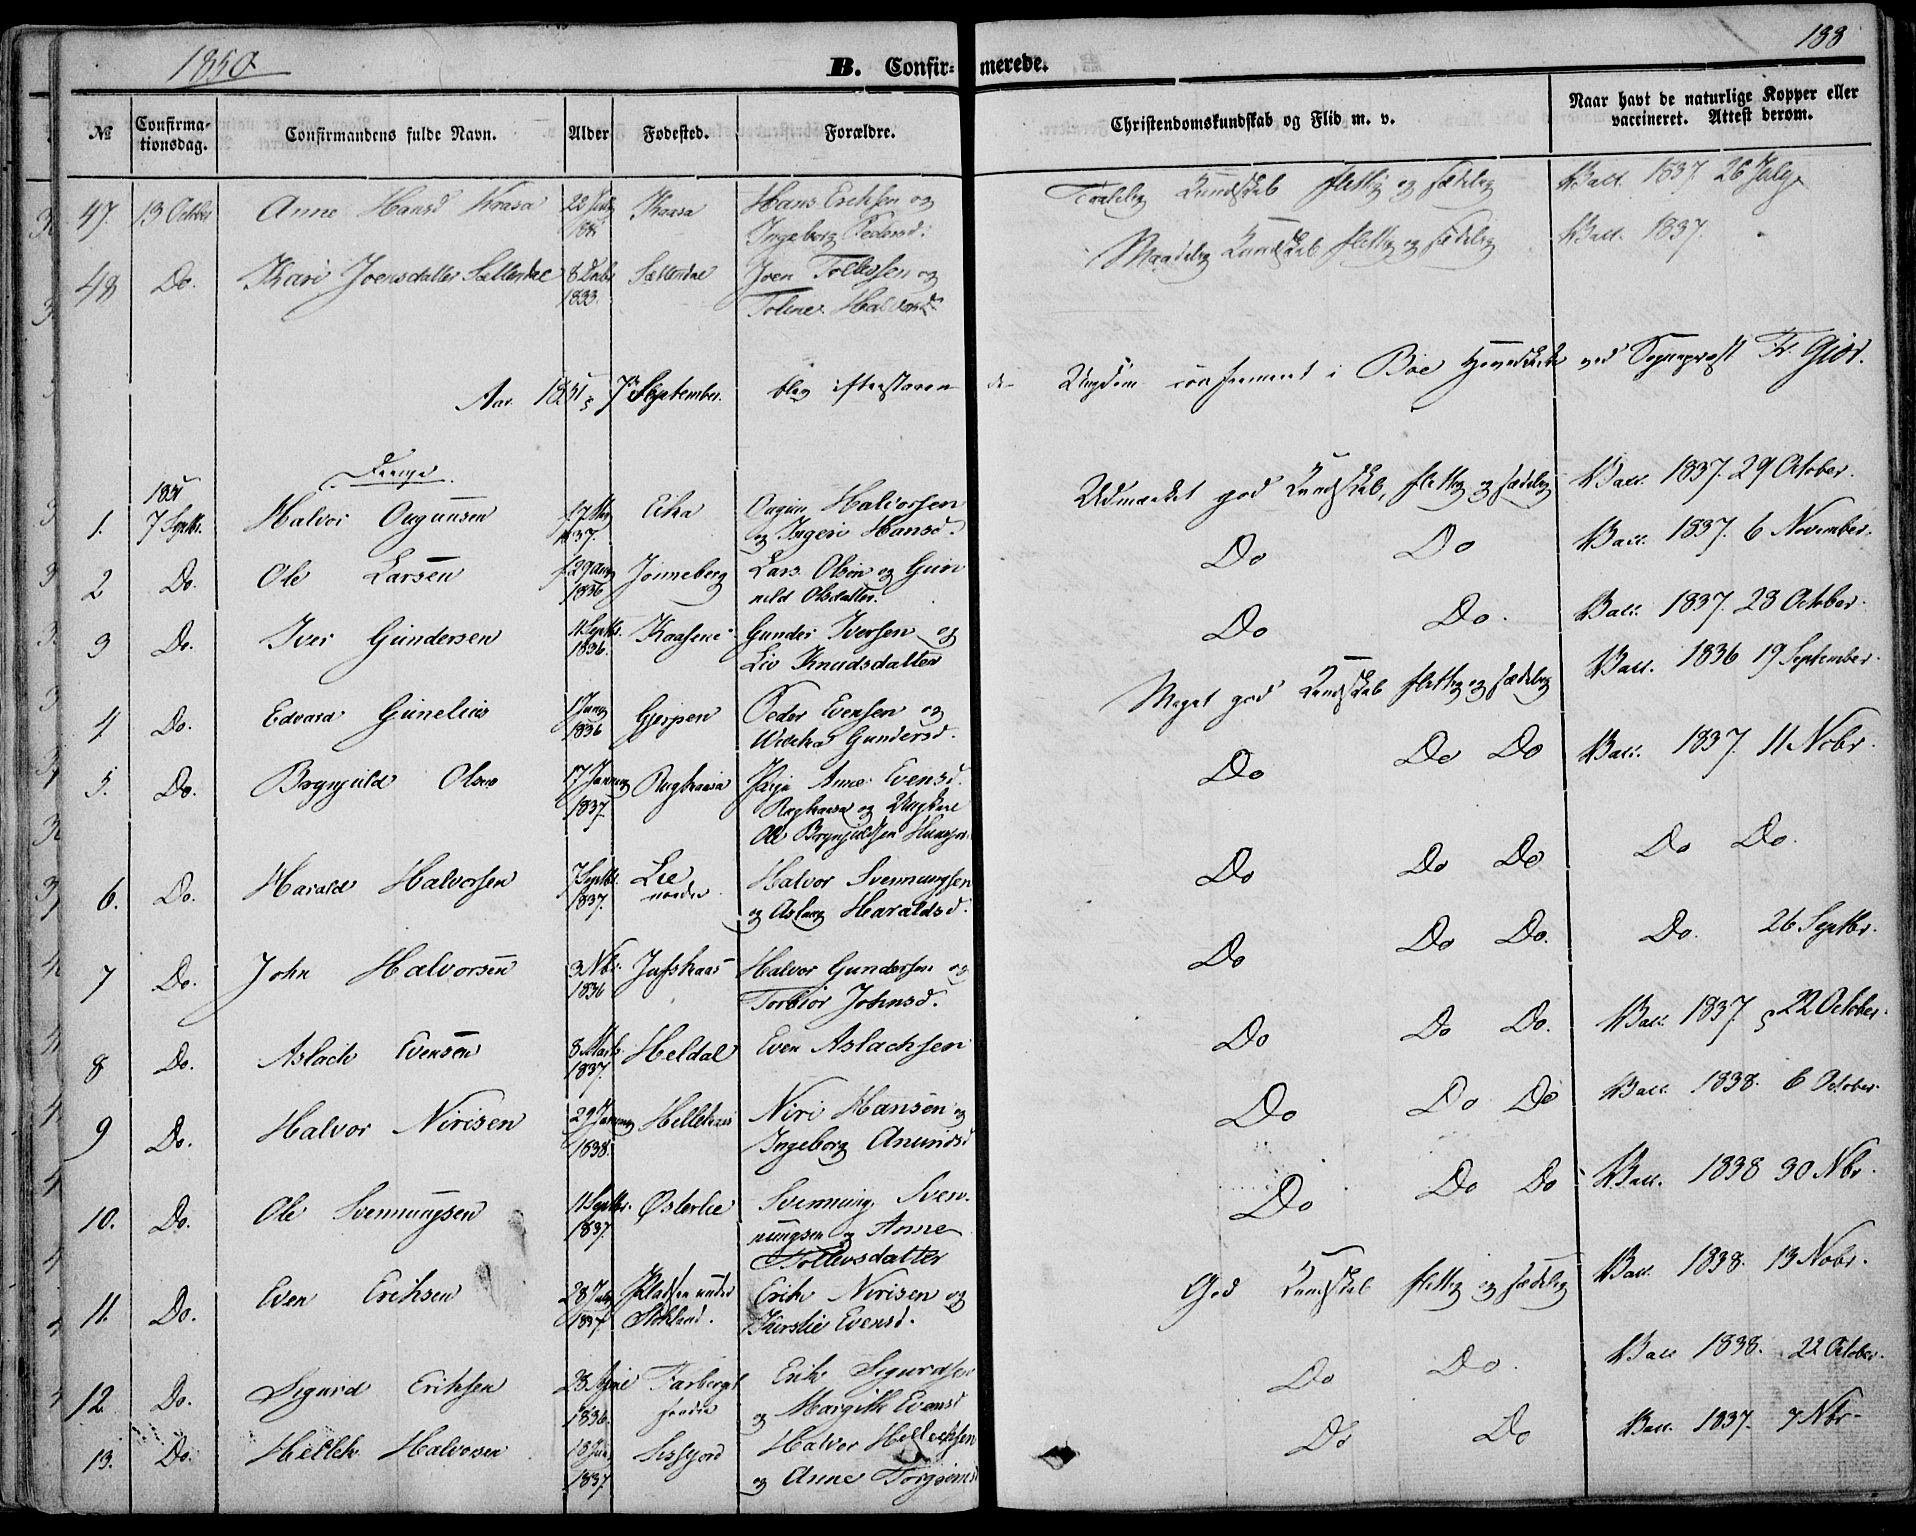 1850
188
B. Confir- merede.
№ Confirma-tionsdag. Confirmandens fulde Navn. Alder Fødested. Forældre. Christendomskundskab og Flid m. v. Naar havt de naturlige Kopper eller vaccineret. Attest derom.
47. 13 October Anne Hansd Kraasa 22 Kaasa Hans Erichsen og Ingeborg Pedersd. Taalelig Kundskab flittig og sædelig Vacc. 1837. 26 July
48 Do. Kari Joensdatter Sættendal 8 1833. Sættendal Joen Tollefsen og Tolene Halvorsd. Maadelig Kundskab flittig og sædelig Vacc. 1837.
Aar 1851, 7de September blev efterstaaende Ungdom confirmeret i Bøe Hovedkirke ved Sogneprest Fr. Gjør.
Drenge
1. 1851 7 Septbr. Halvor Ougunsen 17 1837. Eika Ougun Halvorsen og Ingeri Hansd. Udmærket god Kundskab, flittig og sædelig Vacc. 1837. 29 October.
2 Do. Ole Larsen 29 1836 Jønneberg Lars Olsen og Gunnild Olsdatter. Do Do Vacc. 1837. 6 November.
3 Do. Iver Gundersen 11 Septbr. 1836. Kaasene Gunder Iversen og Liv Knudsdatter Do Do. Vacc. 1837. 28 October.
4 Do. Edvard Gunelius 1 1836 Gjerpen Peder Evensen og Gundersd. Meget god Kundskab flittig og sædelig Vacc. 1836 19 September.
5. Do. Brynjuld Olsen 17 Januar 1837. Ryghaasa Pige Anne Evensd. Ryghaasa og Ungkarl Ole Brynjuldsen Do Do Do Vacc. 1837. 11 Nobr.
6. Do. Harald Halvorsen 7 Septbr. 1837. Lie nordre Halvor Svennungsen og Aslaug Haraldsd. Do Do Do Do Do.
7 Do. John Halvorsen 3 Nbr. 1836 Halvor Gundersen og Torbiør Johnsd. Do Do Do. Do. 26 Septbr.
8 Do. Aslach Evensen 8 Marts 1837. Heldal Even Aslachsen Do Do Do. Vacc. 1837, 22 October.
9 Do. Halvor Nirisen 29 Januar 1838. Niri Hansen og Ingeborg Anundsd Do Do Do Vacc. 1838. 6 October.
10. Do. Ole Svennungsen 11 Septbr. 1837. Østerlie Svennung Svennungsen og Anne Tollevsdatter Do Do Do Vacc. 1838 30 Nbr.
11. Do. Even Erichsen 28 1837 Pladsen under Stokland. Erik Nirisen og Kirstie Evensd. God Kundskab flittig og sædelig Vacc. 1838. 13 Nobr.
12 Do. Sigurd Erichsen 28 1836. Erik Sigurdsen og Margith Evensd Do Do. Vacc 1838. 22 October.
13. Do. Hellek Halvorsen 18 1837. Halvor Helleksen og Anne Do Do Vacc. 1837. 7 Nbr.